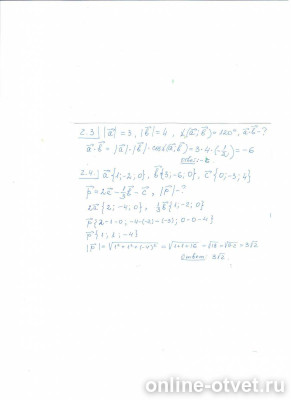 2.3.| |a⃗|=3, |b⃗|=4, ∠(a⃗; b⃗)=120°, a⃗·b⃗-?
a⃗·b⃗ = |a⃗|·|b⃗|·cos(a⃗; b⃗)=3·4·(-1/2)=-6
Ответ: -6
2.4.| a⃗{1;-2; 0}, b⃗{3;-6; 0}, c⃗{0;-3; 4}
p⃗=2a⃗-1/3b⃗-c⃗, |p⃗|-?
2a⃗{2; -4; 0}, 1/3b⃗{1;-2; 0}
p⃗{2-1-0; -4-(-2)-(-3); 0-0-4}
p⃗{1; 1; -4}
|p⃗|=√1²+1²+(-4)² = √1+1+16 = √18 = √9·2 = 3√2
Ответ: 3√2
online-otvet.ru